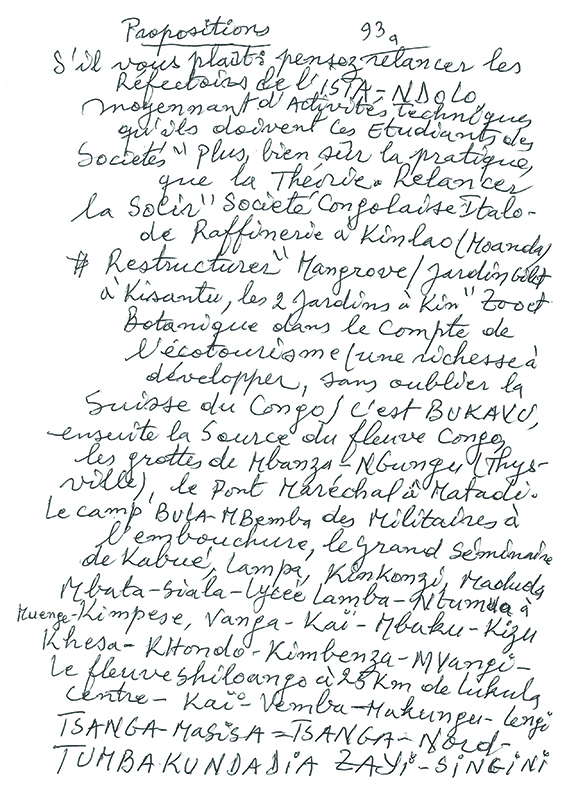 Propositions 93a
S'il vous plaît: pensez relancer les
Réfectoirs de l'ISTA-NDOLO,
moyennant d'Activités techniques
qu'ils doivent ces Etudiants des
Sociétés" plus, bien sûr la pratique,
que la Théorie. Relancer
la Solir" Société Congolaise Italo-
de Raffinerie à Kinlao (Moanda)
# Restructurer" Mangrove/Jardin
à Kisantu, les 2 Jardins à Kin" Zoo et
Botanique dans le Compte de
l'écotourisme (une richesse à
développer, sans oublier la
Suisse du Congo/ C'est BUKAVU,
ensuite la Source du fleuve Congo,
les grottes de Mbanza-Ngungu (Thys-
ville), le Pont Maréchal à Matadi.
Le camp BULA-MBemba des Militaires à
l'embouchure, le grand Séminaire
de Kabué, Lampa, Kinkonzi, Maduda
Mbata-Siala-Lycée Lamba-Ntumua à
Muenge-Kimpese, Vanga-Kaï-Mbuku-Kizu
Khesa-KHondo-Kimbenza-MVangi-
Le fleuve Shiloango à 25 Km de Lukula
Centre-Kaï-Vemba-Makungu-Lengi
TSANGA-MASISA=TSANGA-Nord-
TUMBAKUNDADIA ZAYi-SiNGiNi